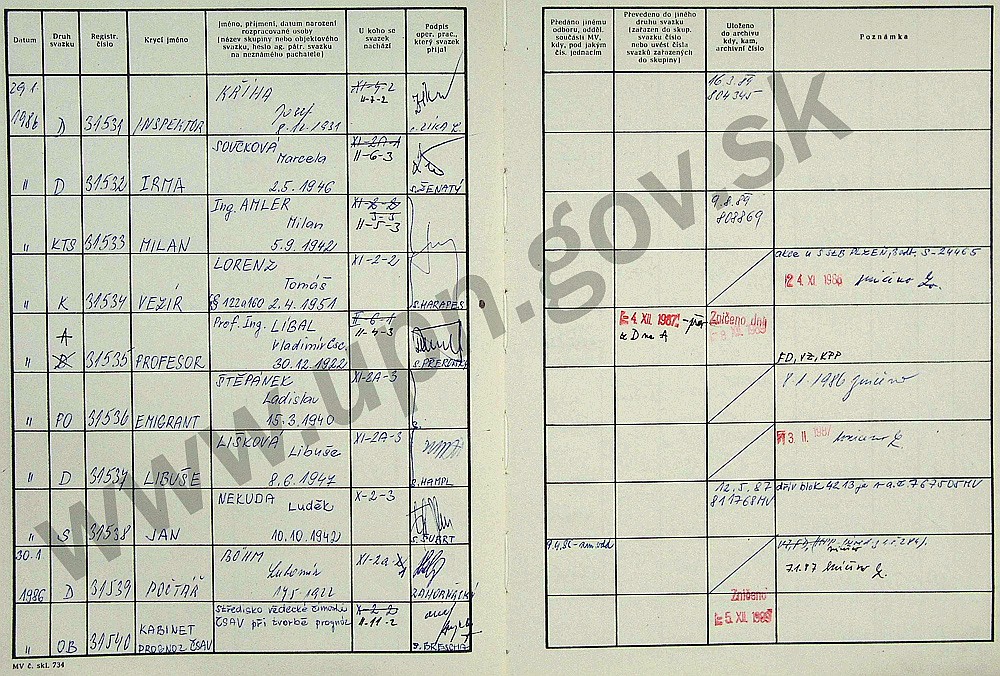 Datum
Druh svazku
Registr. číslo
Krycí jméno
Jméno, příjmení, datum narození
rozpracované osoby
(název skupiny nebo objektového
svazku, heslo ag. pátr. svazku
na neznámého pachatele)
U koho se svazek nachází
Podpis oper. prac., který svazek přijal
Předáno jinému odboru, odděl. součásti MV, kdy, pod jakým čís. jednacím
Převedeno do jiného druhu svazku (zařazen do skup. svazku číslo nebo uvést čísla svazků zařazených do skupiny)
Uloženo do archivu kdy, kam, archivní číslo
Poznámka
29.1. 1986 D 31531 INSPEKTOR
KŘÍHA
Josef
8.12.1931
XI-4-2
II-7-2
16.3.89
804345
" D 31532 IRMA
SOUČKOVÁ
Marcela
2.5.1946
XI-2A-1
II-6-3
S. ŽENATÝ
" KTS 31533 MILAN
Ing. AMLER
Milan
5.9.1942
II-5-3
9.8.89
808869
" K 31534 VEZÍR
LORENZ
Tomáš
§ 122a160 2.4.1951
XI-2-2
S. HARAPES
akce u S StB PLZEŇ, S-24465
24. XI. 1986 zničeno
A
" D 31535 PROFESOR
Prof. Ing. LIBAL
Vladimír Csc.
30.12.1922
II-6-1
II-4-3
4. XII. 1987
z D na A
Zničeno dny
8. XII. 1989
FD, VZ, KPP
" PO 31536 EMIGRANT
ŠTĚPÁNEK
Ladislav
15.3.1940
XI-2A-3
8.1.1986 zničeno
" D 31537 LIBUŠE
LIŠKOVÁ
Libuše
8.6.1947
XI-2A-3
S. HAMPL
3. II. 1987 zničeno
" S 31538 JAN
NEKUDA
Luděk
10.10.1942
X-2-3
12.5.87
811768 MV
dřív blok 4213 je v a.č. 767505 MV
30.1 1986 D 31539 POČTÁŘ
BÖHM
Lubomír
17.5.1922
XI-2a
7.1.87 zničeno
" OB 31540 KABINET
PROGNOZ ČSAV
Středisko vědecké činnosti
ČSAV při tvorbě prognóz
X-2-2
II-11-2
Zničeno
5. XII. 1989
MV č. skl. 734
www.upn.gov.sk